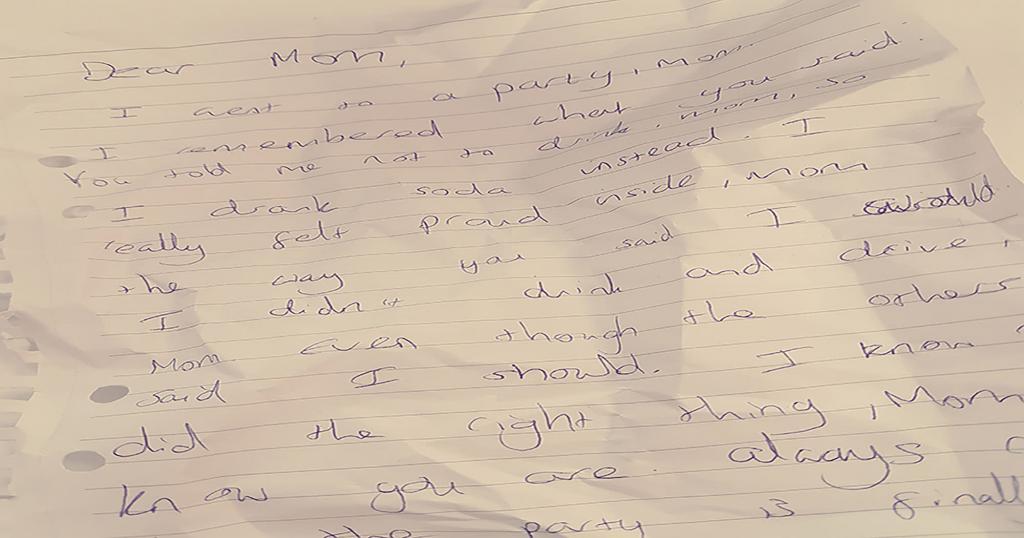 Dear Mom,
I went to a party, Mom.
I remembered what you said.
You told me not to drink, mom, so
I drank soda instead. I
really felt proud inside, Mom
the way you said I would
I didn't drink and drive,
Mom even though the others
said I should. I know I
did the right thing, Mom
know you are always
the party is finall